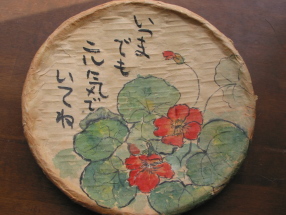 いつま
でも
元気で
いてね